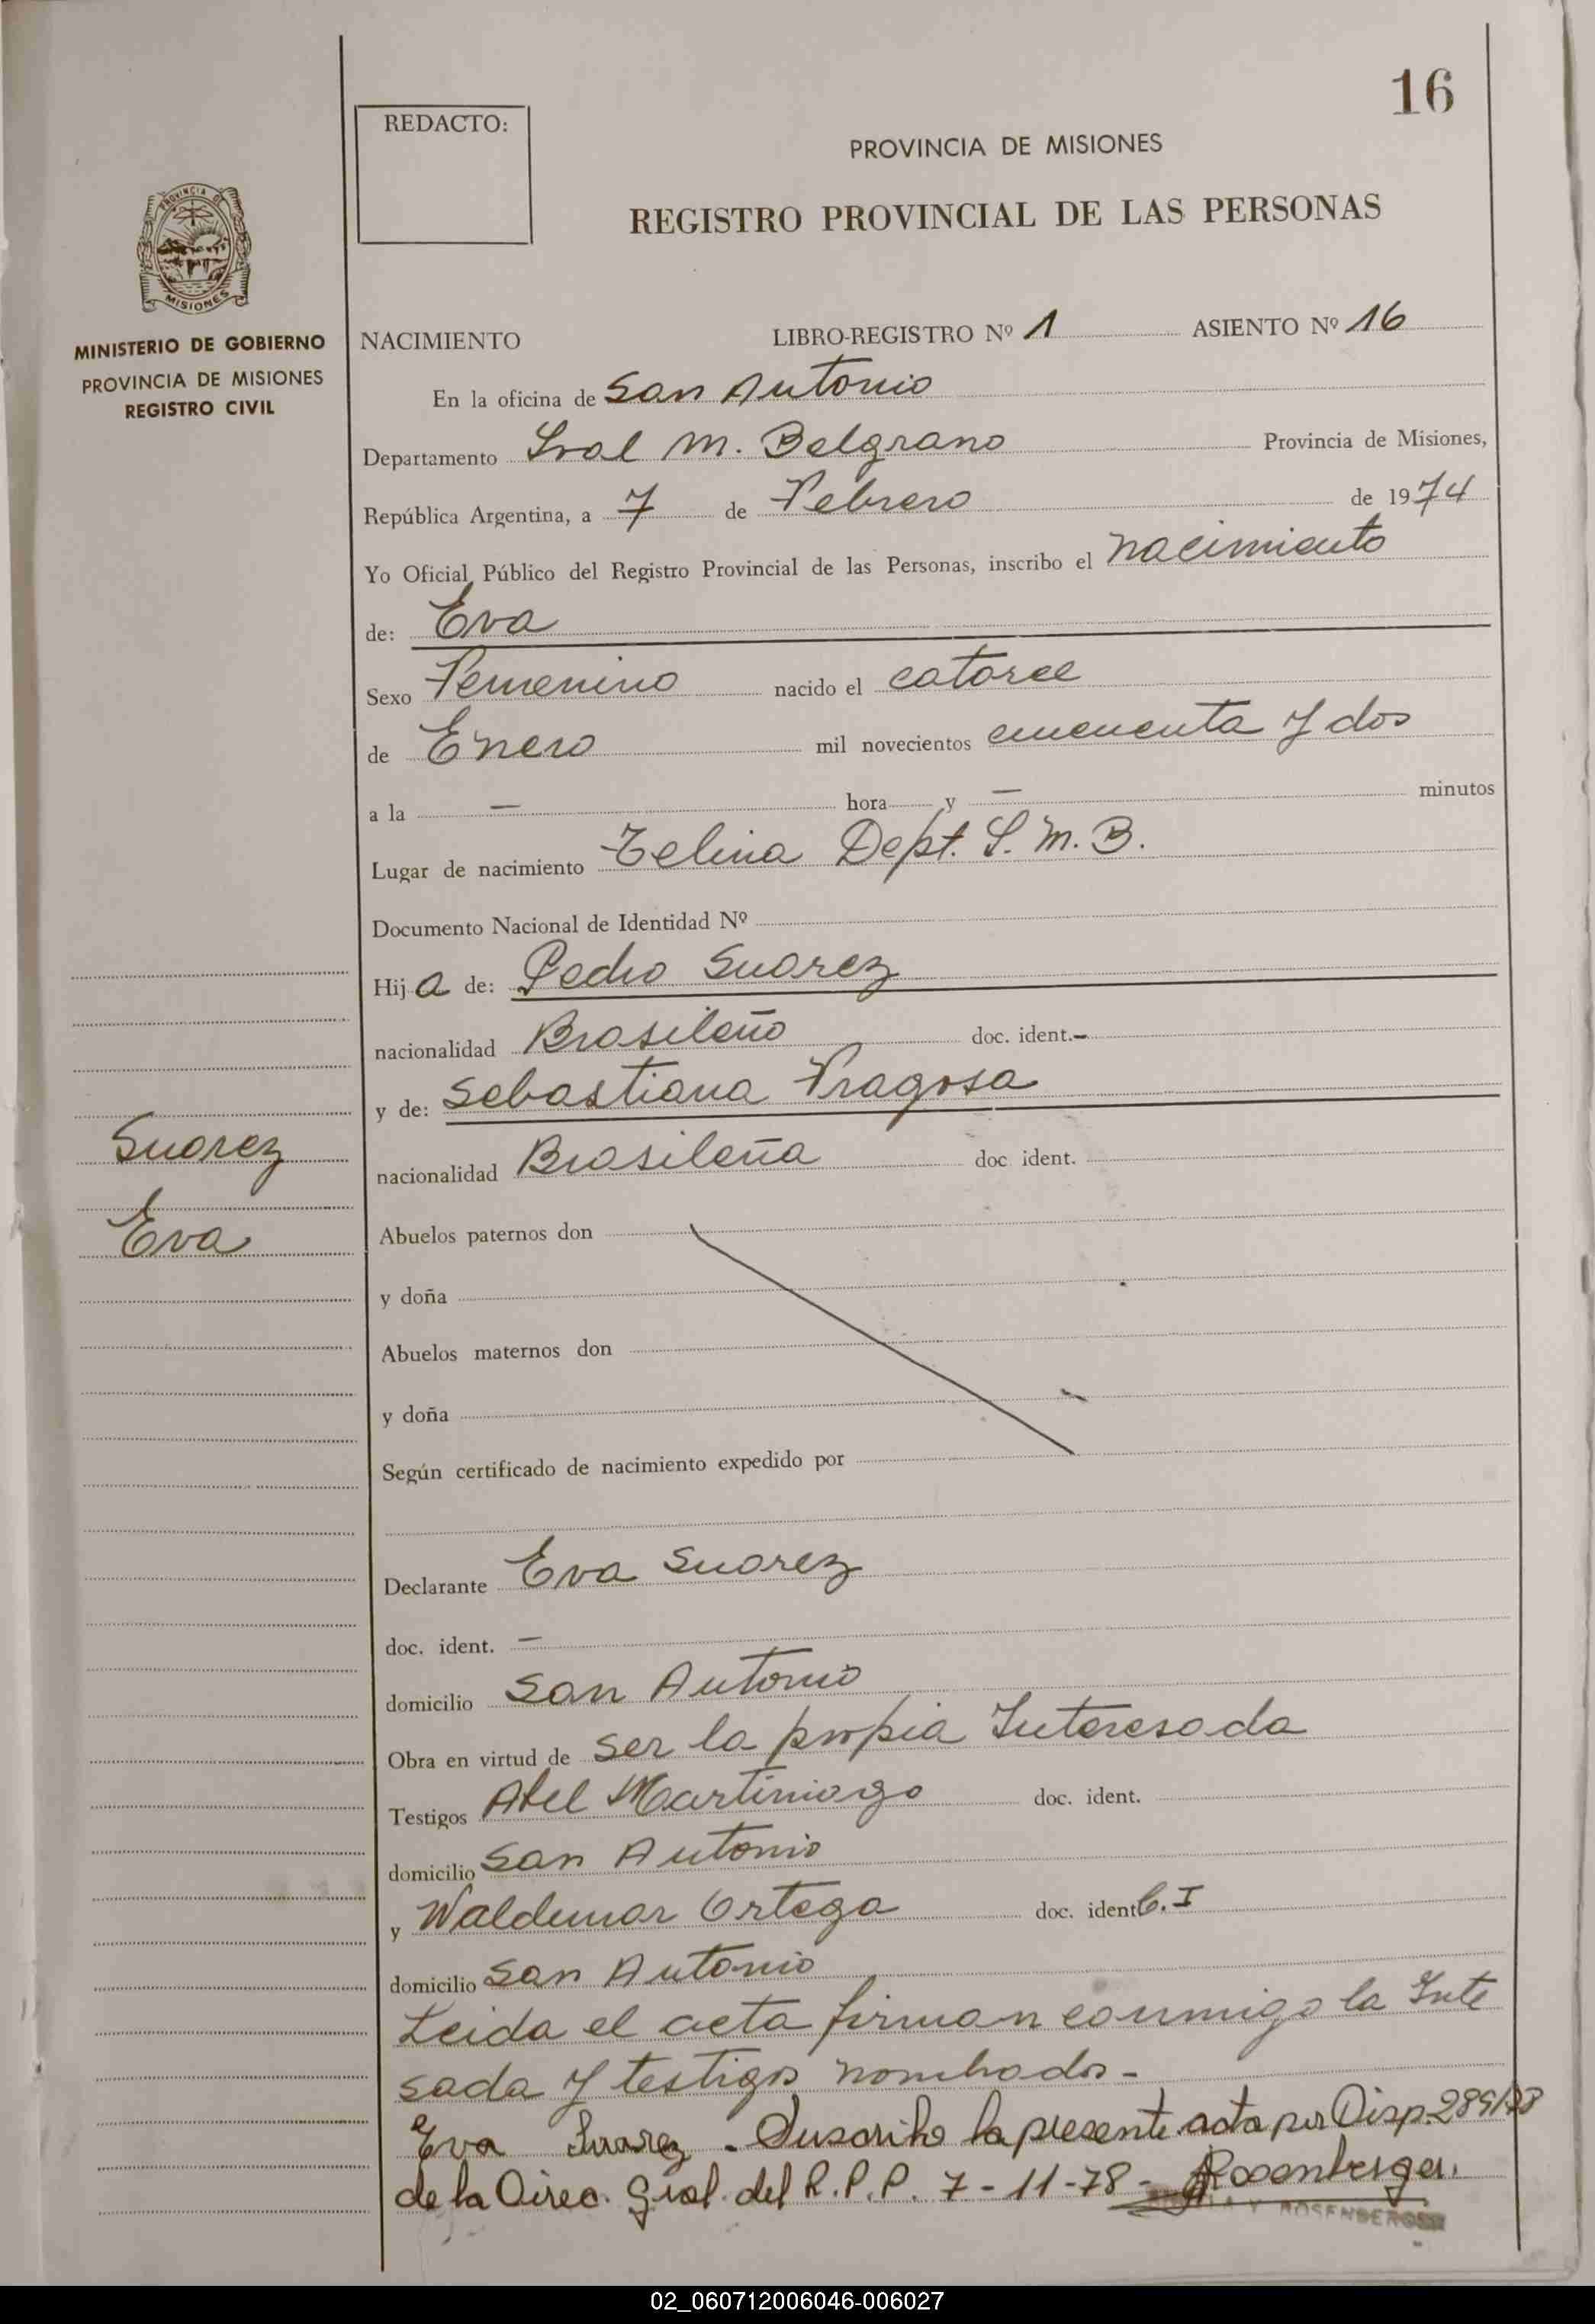 16
REDACTO:
PROVINCIA DE MISIONES
REGISTRO PROVINCIAL DE LAS PERSONAS
PROVINCIA DE
MISIONES
MINISTERIO DE GOBIERNO
PROVINCIA DE MISIONES
REGISTRO CIVIL
NACIMIENTO LIBRO-REGISTRO Nº 1 ASIENTO Nº 16
En la oficina de San Antonio
Departamento Gral M. Belgrano Provincia de Misiones,
República Argentina, a 7 de Febrero de 1974
Yo Oficial Público del Registro Provincial de las Personas, inscribo el nacimiento
de: Eva
Sexo Femenino nacido el catorce
de Enero mil novecientos cincuenta y dos
a la — hora y — minutos
Lugar de nacimiento Dept. G. M. B.
Documento Nacional de Identidad Nº
Hija de: Pedro Suarez
nacionalidad Brasileño doc. ident.-
y de: Sebastiana Fragosa
nacionalidad Brasileña doc ident.
Suarez
Eva
Abuelos paternos don
y doña
Abuelos maternos don
y doña
Según certificado de nacimiento expedido por
Declarante Eva Suarez
doc. ident. —
domicilio San Antonio
Obra en virtud de ser la propia Interesada
Testigos Abel doc. ident.
domicilio San Antonio
y Waldemar Ortega doc. ident C. I
domicilio San Antonio
Leida el acta firman conmigo la Inte
sada y testigos nombrados -
Eva Suarez - Suscribo la presente acta por Disp. 289/78
de la Direc. Gral. del R. P. P. 7-11-78- Rosenberger.
Y ROSENBERGER
02_060712006046-006027